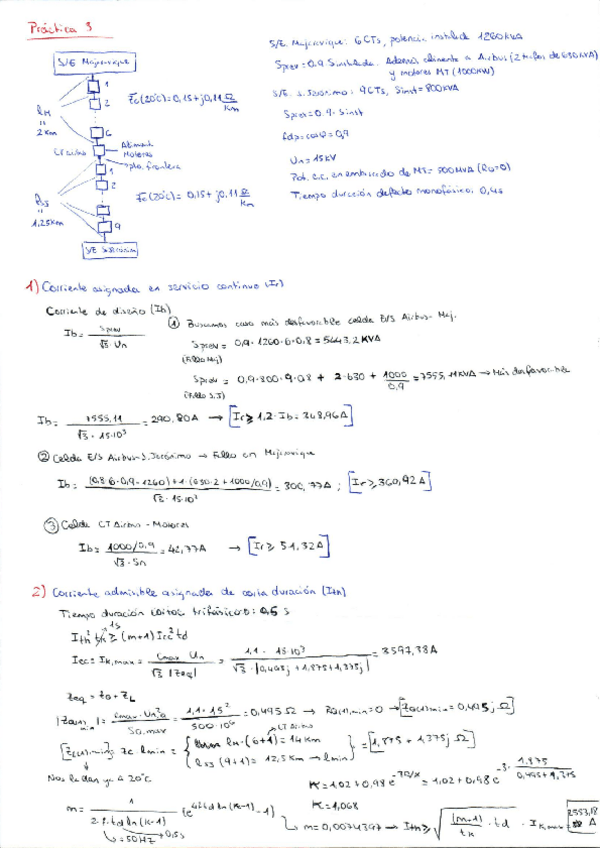 Práctica 3
S/E Majaravique
1
2
lM
"
2 Km
6
CT Airbus
Airbus
Motores
pto. frontera
1
2
l SJ
"
1,25 Km
9
S/E S.Jerónimo
Zc(20°C)=0,15+j0,11 Ω/Km
Zc(20°C)=0,15+j0,11 Ω/Km
S/E Majaravique: 6 CTs, potencia instalada 1260 KVA
Sprev = 0.9 Sinstalada. Además alimenta a Airbus (2 trafos de 630 KVA)
y motores MT (1000KW)
S/E S.Jerónimo: 9 CTs, Sinst = 800KVA
Sprev = 0.9 · Sinst
fdp = cosφ = 0,9
Un = 15 KV
Pot. c.c. en embarrado de MT = 500 MVA (RQ=0)
Tiempo duración defecto monofásico: 0,4s
1) Corriente asignada en servicio continuo (Ir)
Corriente de diseño (Ib)
Ib = Sprev / √3 · Un
① Buscamos caso más desfavorable celda E/S Airbus - Maj.
Sprev = 0,9 · 1260 · 6 · 0,8 = 5443,2 KVA
(Fallo Maj)
Sprev = 0,9 · 800 · 9 · 0,8 + 2 · 630 + 1000/0,9 = 7555,11 KVA → Más desfavorable
(Fallo S.J)
Ib = 7555,11 / √3 · 15·10³ = 290,80A → [Ir ≥ 1,2 · Ib = 348,96A]
② Celda E/S Airbus - S.Jerónimo → Fallo en Majaravique
Ib = (0,8·6·0,9·1260) + 1·(630·2 + 1000/0,9) / √3 · 15·10³ = 300,77A ; [Ir ≥ 360,92 A]
③ Celda CT Airbus - Motores
Ib = 1000/0,9 / √3 · Sn = 42,77A → [Ir ≥ 51,32 A]
2) Corriente admisible asignada de corta duración (Ith)
Tiempo duración cortoc trifásico: 0,5 s
1s
Ith² th ≥ (m+1) Icc² td
Icc = Ik,max = Cmax Un / √3 |Zeq| = 1,1 · 15·10³ / √3 · |0,495j + 1,875+1,375j| = 3597,38A
Zeq = ZQ + ZL
|ZQ(1),min| = Cmax · Un²Q / SQ,max = 1,1 · 15² / 500·10⁶ = 0,495 Ω → RQ(1),min = 0 → [ZQ(1),min = 0,495 j Ω]
CT Airbus
[ZL(1),min] = Zc · lmin = { lM · (6+1) = 14 Km
lSJ (9+1) = 12,5 Km → lmin } = [1,875 + 1,375j Ω]
Nos la dan ya a 20°C
K = 1,02 + 0,98 e^-3R/X = 1,02 + 0,98 e^-3 · 1,875 / 0,495+1,375
K = 1,068
m = 1 / 2 f · td ln(K-1) (e^4f td ln(K-1) - 1)
= 50HZ
0,5s
m = 0,0074397 → Ith ≥ √((m+1)/tk · td) · Ik,max = 2553,18 A